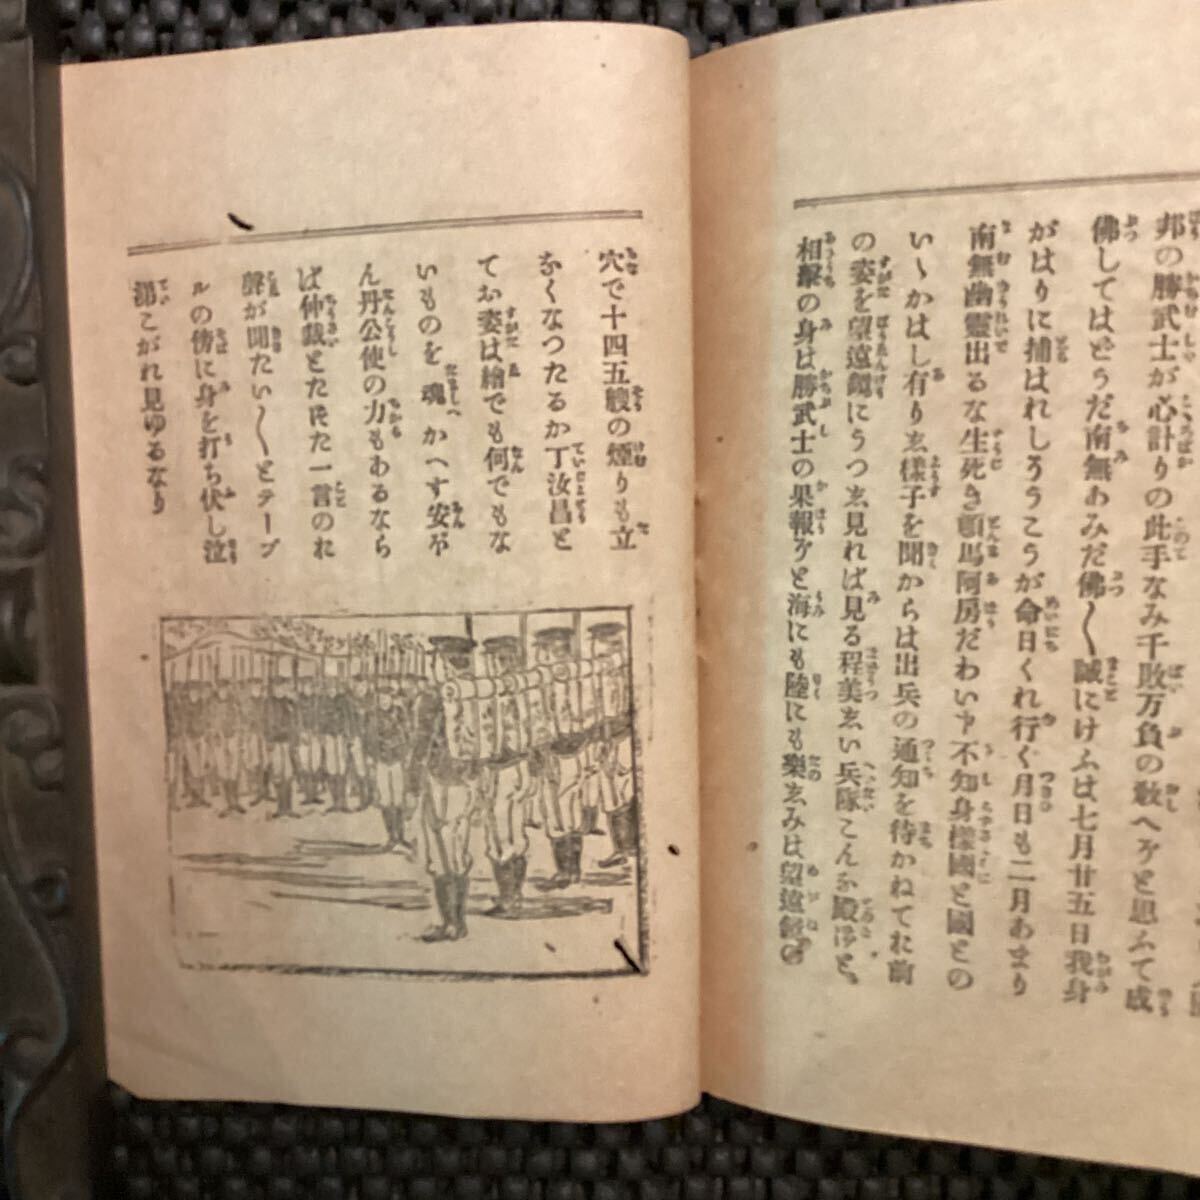 邦の勝武士が心計りの此手なみ千敗万負の敵へヶと思ふて成
佛してはどうだ南無あみだ佛〳〵誠にけふは七月廿五日我身
がはりに捕はれしろうこうが命日くれ行ぐ月日も二月あまり
南無幽靈出るな生死き頓馬阿房だわいヤ不知身樣國と國との
いゝかはし有りゑ樣子を聞からは出兵の通知を待かねてれ前
の姿を望遠鏡にうつゑ見れば見る程美ゑい兵隊こんな殿御と
相擊の身は勝武士の果報ヶと海にも陸にも樂ゑみは望遠鏡
穴で十四五艘の煙りも立
なくなつたるか丁汝昌と
てお姿は繪でも何でもな
いものを魂かへす安ア
ん丹公使の力もあるなら
ば仲裁とたゞた一言のれ
聲が聞たい〳〵とテーブ
ルの傍に身を打ち伏し泣
涕こがれ見ゆるなり